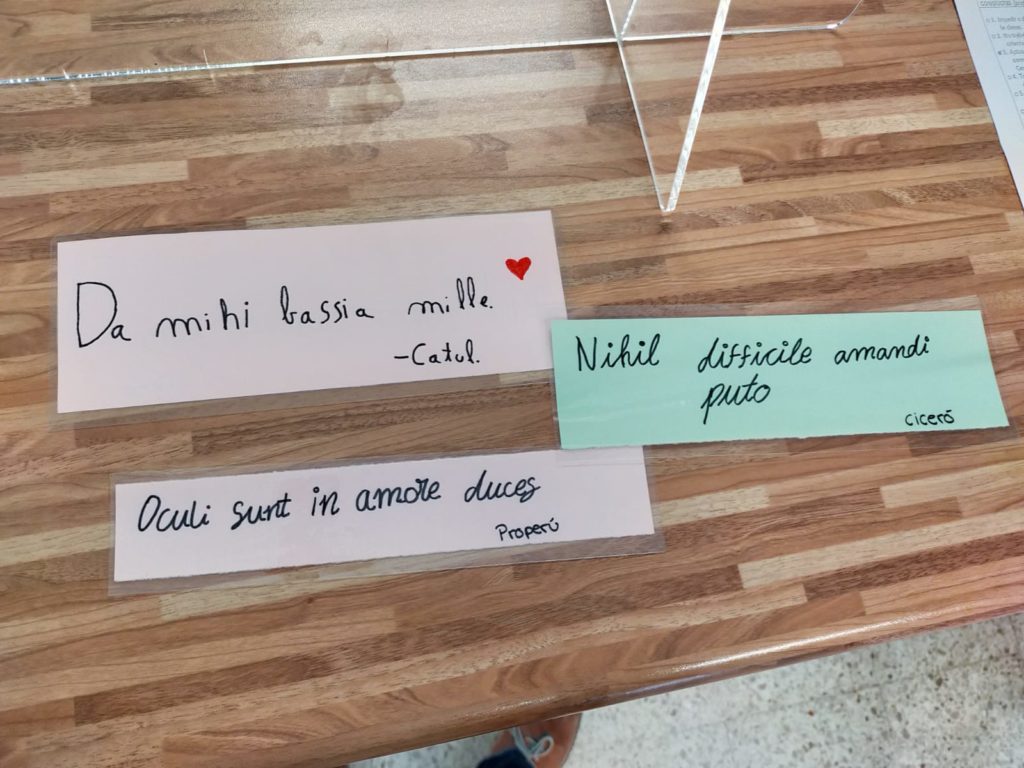 Da mihi bassia mille.
-Catul.
Nihil difficile amandi
puto
ciceró
Oculi sunt in amore duces